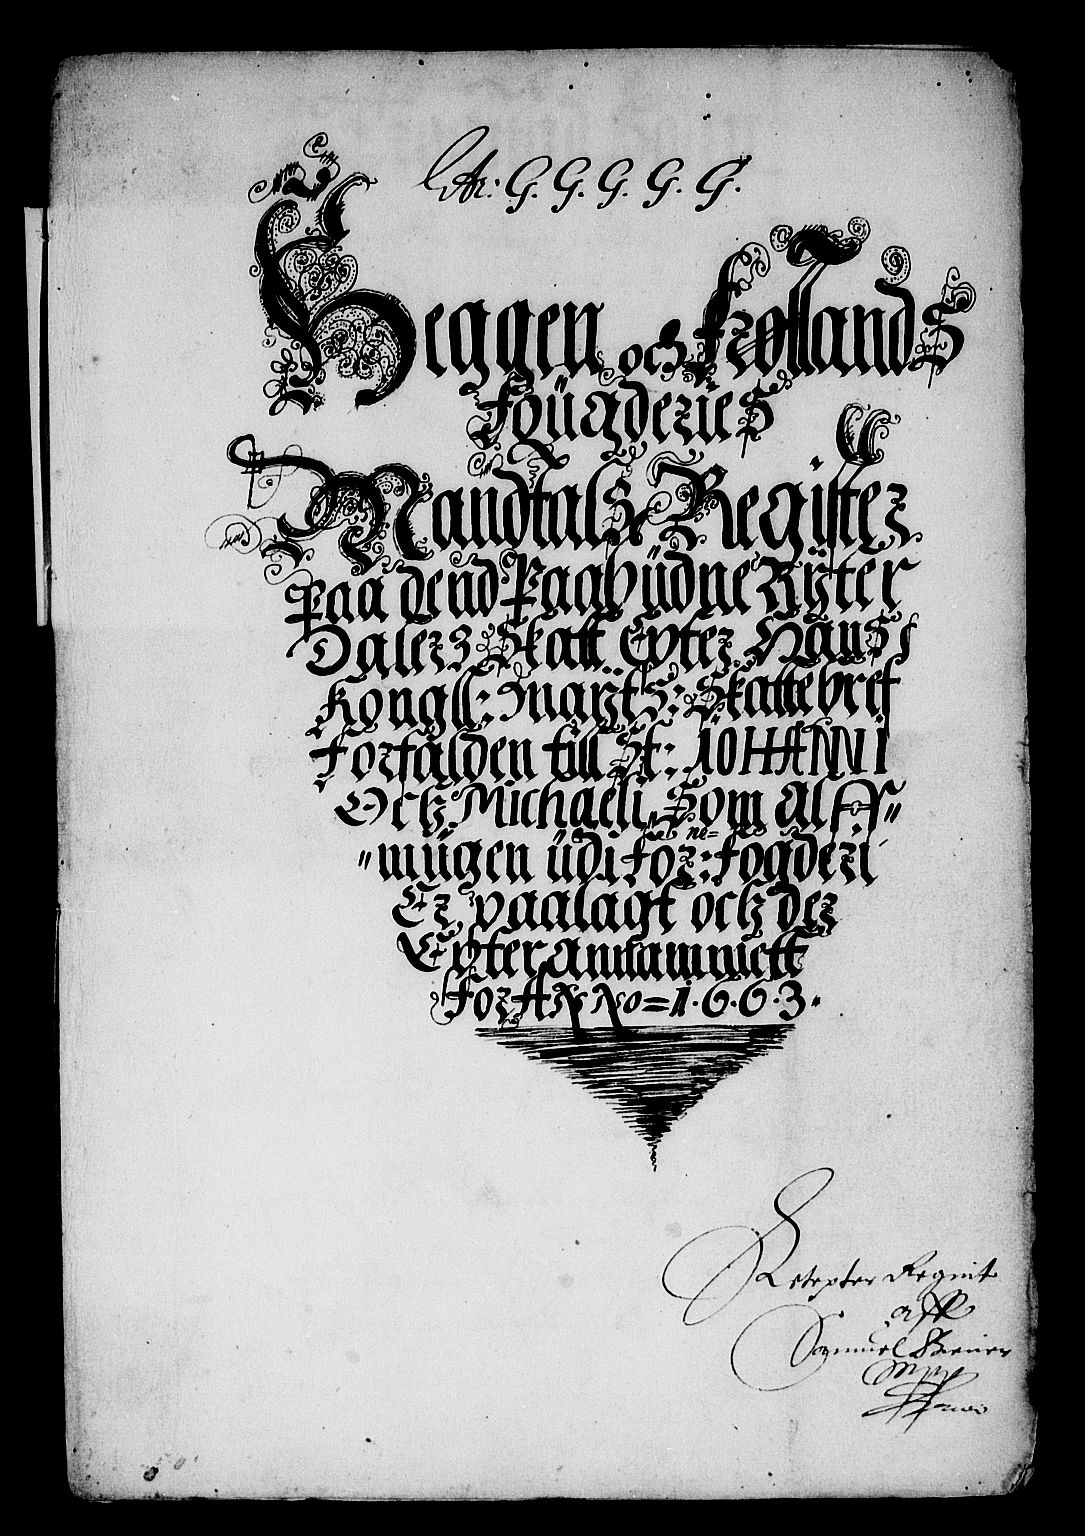 Litr: G. G. G. G. G.
Heggen och Frøllands
Fougderies
Mandtals Register
Paa dend Paabüdne Rÿter
Dalers Skatt Epter Hans
Kongll: Maÿts: Skattebref
Forfalden till St: IOHANNI
Och Michaeli, Som Alff„
„mügen üdi for: ne= fogderi
Er paalagt och der
Epter Annammett
for ANNo = 1.6.6.3.
Register
aff
Samuel